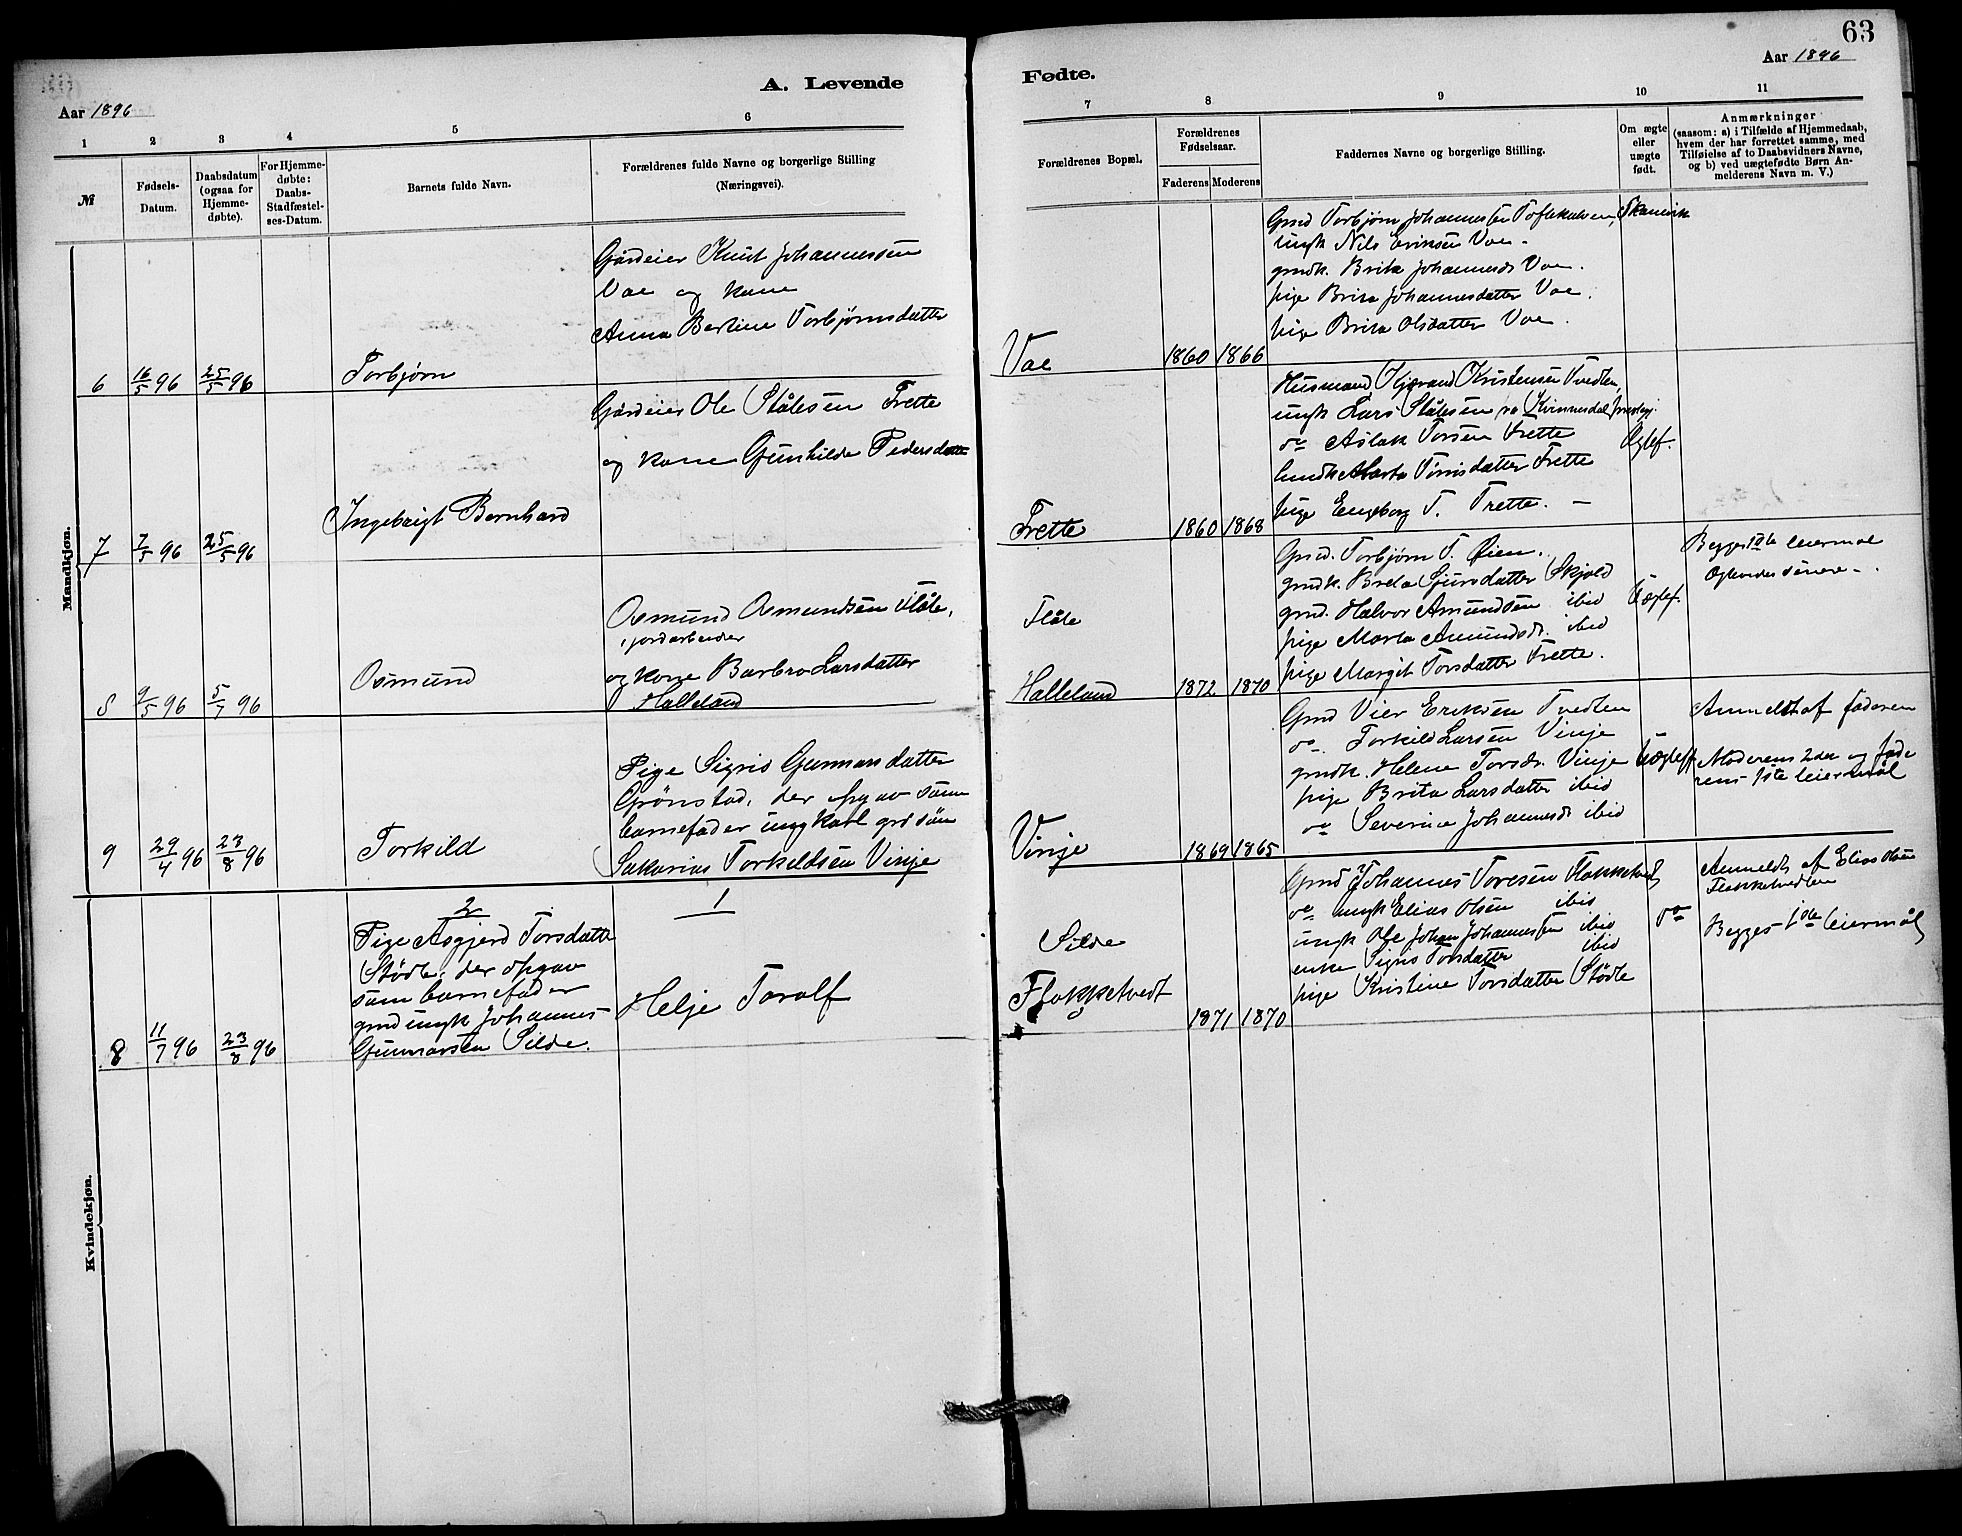 63
A. Levende
Fødte.
Aar 1896
Aar 1896
1
2
3
4
5
6
7
8
9
10
11
№
Fødsels-
Datum.
Daabsdatum
(ogsaa for
Hjemme-
døbte).
For Hjemme-
døbte:
Daabs-
Stadfæstel-
ses-Datum.
Barnets fulde Navn.
Forældrenes fulde Navne og borgerlige Stilling
(Næringsvei).
Forældrenes Bopæl.
Forældrenes
Fødselsaar.
Faderens
Moderens
Faddernes Navne og borgerlige Stilling.
Om ægte
eller
uægte
født.
Anmærkninger
(saasom: a) i Tilfælde af Hjemmedaab,
hvem der har forrettet samme, med
Tilføielse af to Daabsvidners Navne,
og b) ved uægtefødte Børn An-
melderens Navn m. V.)
Mandkjøn.
6
16/5 96
25/5 96
Torbjørn
Gårdeier Knut Johannessen
Vae og kone
Anna Bertine Torbjørnsdatter
Vae
1860
1866
Gmd Torbjørn Johannessen Skaanevik
ungk Nils Eriksen Vae.
gmdk. Brita Johannesd. Vae.
pige Brita Johannesdatter Vae.
pige Brita Olsdatter Vae.
7
7/5 96
25/5 96
Ingebrigt Bernhard
Gårdeier Ole Stålesen Frette
og kone Gunhilde Pedersdatter
Frette
1860
1868
Husmand Kristensen Tvedten,
ungk Lars Stålesen Kvinnesdal
do Aslak Torsen Frette
Marta Tørrisdatter Frette
pige Engeborg T. Frette. —
Ægtef.
8
9/5 96
5/7 96
Osmund
Osmund Osmundsen Flåte,
jordarbeider
og kone Barbro Larsdatter
Halleland
Flåte
Halleland
1872
1870
Gmd. Torbjørn T. Øien.
gmdk. Breta Sjursdatter Skjold
gmd. Halvor Amundsen ibid
pige Marta Amundsd. ibid
pige Margit Torsdatter Frette.
Uægtef.
Begges 1ste leiermål
9
29/4 96
23/8 96
Torkild
Pige Sigrid Gunnarsdatter
Grønstad, der opgav som
barnefader ungkarl grdsøn
Sakarias Torkildsen Vinje
Vinje
1869
1865
Gmd Vier Eriksen Tvedten
do. Torkild Larsen Vinje
gmdk. Helene Torsd. Vinje
pige Brita Larsdatter ibid
do Severine Johannesd ibid
Uægtef
Anmeldt af faderen
Moderens 2det og fade
rens 1ste leiermål
Kvindekjøn.
8
11/7 96
23/8 96
2
Pige Asgjerd Torsdatter
Stødle, der opgav
som barnefader
gmd ungk Johannes
Gunnarsen Silde.
1
Helje Toralf
Silde
Flokketvedt
1871
1870
Gmd Johannes Toresen Flokketvedt
do ungk Elias Olsen ibid
ungk Ole Johan Johannessen ibid
enke Sigrid Torsdatter ibid
pige Kristine Torsdatter Stødle
do
Anmeldt af Elias Olsen
Flokketvedten
Begges 1ste leiermål